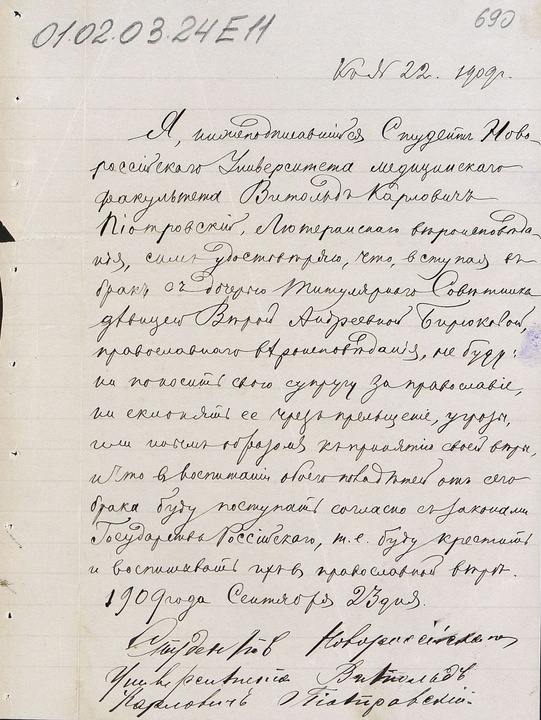 01.02.03.24 E 11
690
Къ № 22. 1909 г.
Я, нижеподписавшійся Студентъ Ново-
россійскаго Университета медицинскаго
факультета Витольдъ Карловичъ
Піотровскій, Лютеранскаго вѣроисповѣда-
нія, симъ удостовѣряю, что, вступая въ
бракъ съ дочерью Титулярнаго Совѣтника
дѣвицею Вѣрой Андреевной Бирюковой,
православнаго вѣроисповѣданія, не буду:
ни поносить свою супругу за православіе,
ни склонять ее чрезъ прельщеніе, угрозы,
или инымъ образомъ къ принятію своей вѣры,
и что въ воспитаніи обоего пола дѣтей отъ сего
брака буду поступать согласно съ законами
Государства Россійскаго, т.е. буду крестить
и воспитывать ихъ въ православной вѣрѣ.
1909 года Сентября 23 дня.
Студентъ Новороссійскаго
Университета Витольдъ
Карловичъ Піотровскій.